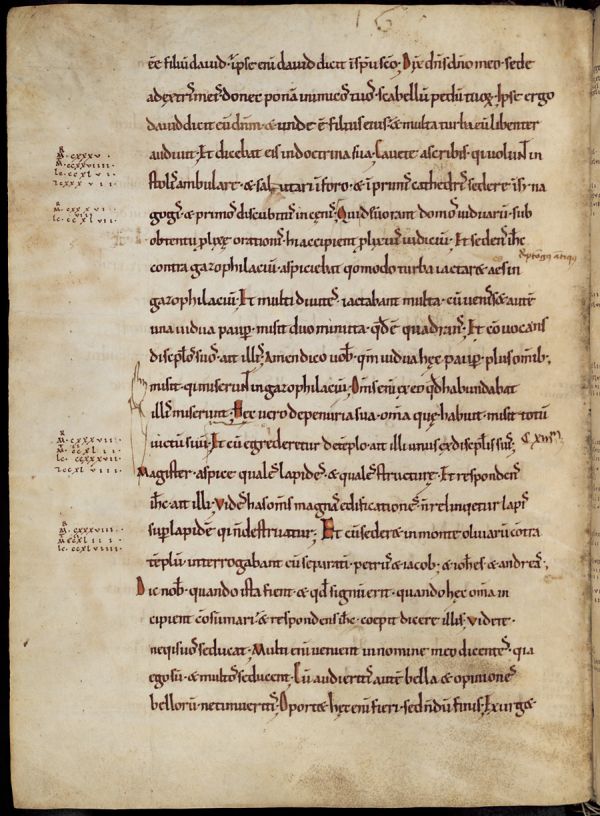 16
ee filiu david · ipse eni david dicit ispu sco · Dix dns dno meo · sede
adextris meis · donec ponā inimicos tuos · scabellū pedū tuoꝝ · Ipse ergo
david dicit eū dnm · & unde ē filius eius · & multa turba eū libenter
audivit · Et dicebat eis in doctrina sua · Cavete a scribis · qui volunt in
stolis ambulare · & salutari i foro · & i primis cathedris sedere i syna
gogis · & primos discubitus in cenis · Qui devorant domos viduarū · sub
obtentu plixę orationis · hi accipient plixius iudiciū · Et sedens ihc
contra gazophilaciū · aspiciebat qomodo turba iactaret aes in
gazophilaciū · Et multi divites iactabant multa · Cū venisset autē
una vidua paup · misit duo minuta · qd ē quadrans · Et covocans
discplos suos · ait illis · Amen dico vob · qm vidua hęc paup · plus omib ·
misit · qui miserunt in gazophilaciū · Oms eni ex eo qd habundabat
illis miserunt · Hęc vero de penuria sua · oma quę habuit · misit totū
victū suū · Et cū egrederetur de templo · ait illi unus ex discplis suis ·
Magister · aspice quales lapides · & quales structurę · Et respondens
ihc · ait illi · Vides has oms magnas edificationes · n relinqetur lapis
sup lapidē qi n destruatur · Et cū seder& in monte olivarū cotra
teplū · interrogabant eū separati · petrus & iacob · & iohes & andreas ·
Dic nob · quando ista fient · & qd signū erit · quando hęc oma in
cipient cosumari · & respondens ihc · coepit dicere illis · videte ·
neqis vos seducat · Multi eni venient in nomine meo dicentes · qia
ego sū · & multos seducent · Cū audieritis autē bella & opiniones
bellorū · ne timueritis · Oport& hęc eni fieri · sed ndū finis · Exurg&